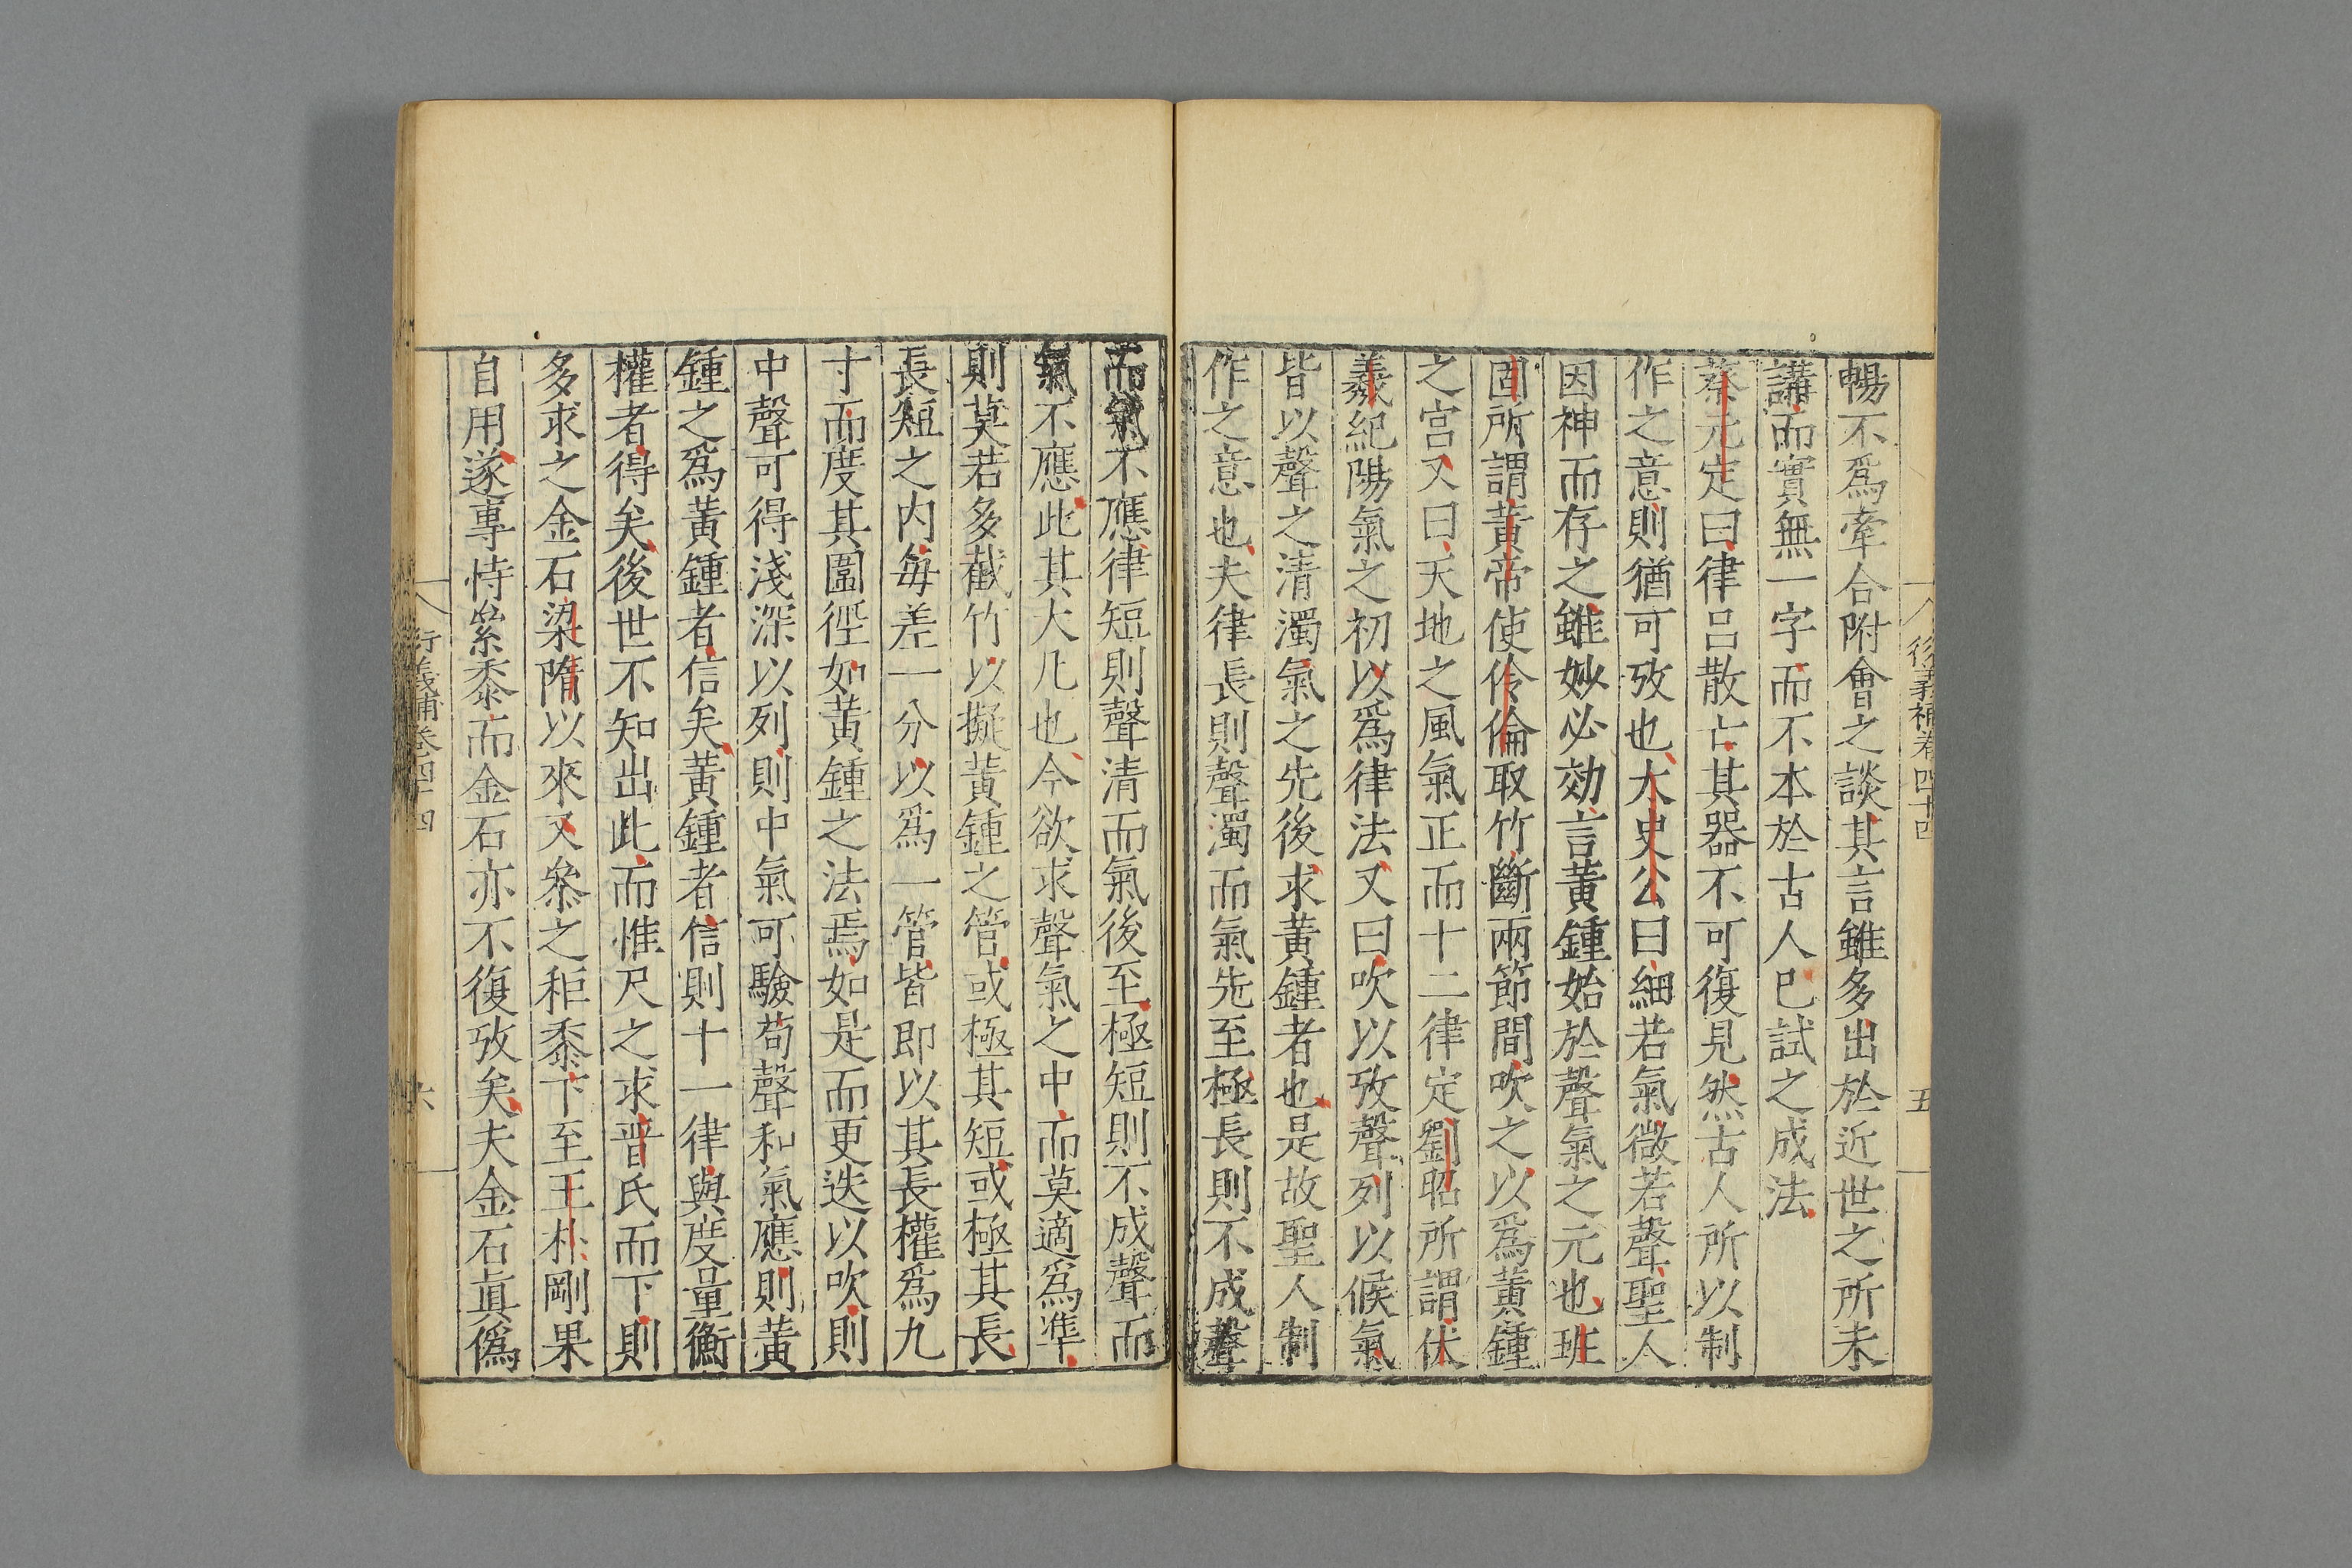 衍義補卷四十四
五
暢不爲牽合附會之談其言雖多出於近世之所未
講而實無一字而不本於古人已試之成法
蔡元定曰律呂散亡其器不可復見然古人所以制
作之意則猶可攷也太史公曰細若氣微若聲聖人
因神而存之雖妙必効言黃鍾始於聲氣之元也班
固所謂黃帝使伶倫取竹斷兩節間吹之以爲黃鍾
之宮又曰天地之風氣正而十二律定劉昭所謂伏
羲紀陽氣之初以爲律法又曰吹以攷聲列以候氣
皆以聲之清濁氣之先後求黃鍾者也是故聖人制
作之意也夫律長則聲濁而氣先至極長則不成聲
而氣不應律短則聲清而氣後至極短則不成聲而
氣不應此其大凡也今欲求聲氣之中而莫適爲準
則莫若多截竹以擬黃鍾之管或極其短或極其長
長短之內每差一分以爲一管皆即以其長權爲九
寸而度其圍徑如黃鍾之法焉如是而更迭以吹則
中聲可得淺深以列則中氣可驗苟聲和氣應則黃
鍾之爲黃鍾者信矣黃鍾者信則十一律與度量衡
權者得矣後世不知出此而惟尺之求晉氏而下則
多求之金石梁隋以來又參之秬黍下至王朴剛果
自用遂專恃累黍而金石亦不復攷矣夫金石眞僞
衍義補卷四十四
六